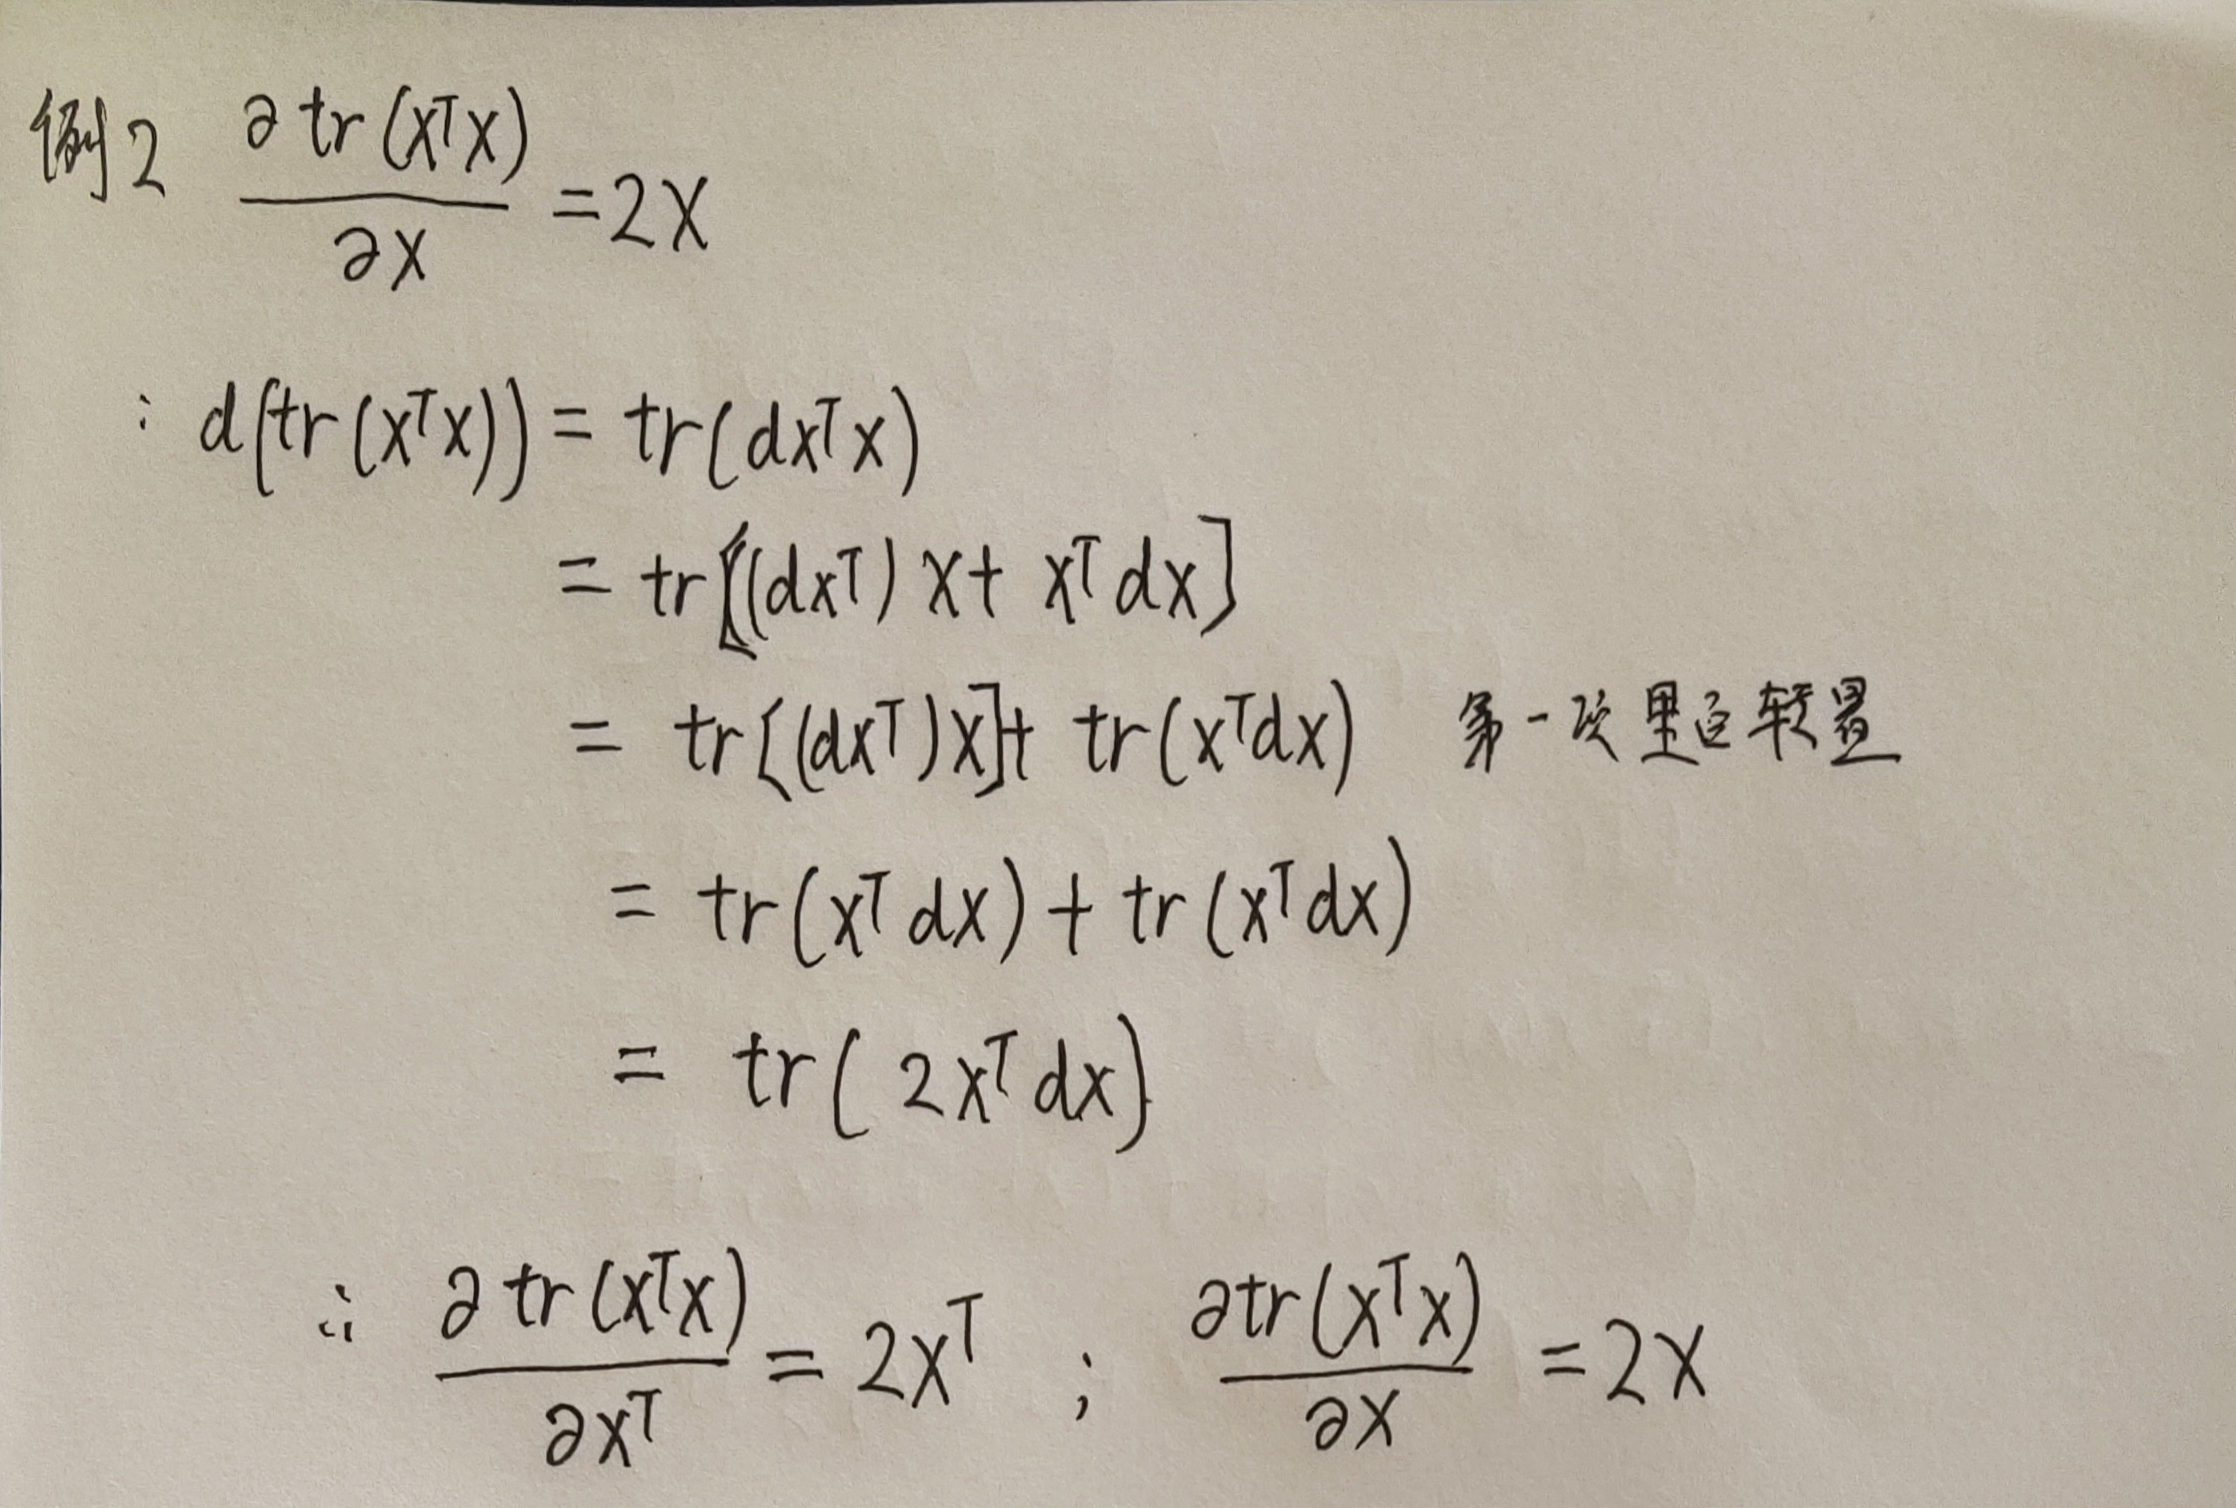 例2 ∂tr(XᵀX)/∂X = 2X
∵ d[tr(XᵀX)] = tr(dXᵀX)
= tr[(dXᵀ)X + Xᵀdx]
= tr[(dXᵀ)X] + tr(Xᵀdx) 第一次里边转置
= tr(Xᵀdx) + tr(Xᵀdx)
= tr(2Xᵀdx)
∴ ∂tr(XᵀX)/∂Xᵀ = 2Xᵀ ; ∂tr(XᵀX)/∂X = 2X